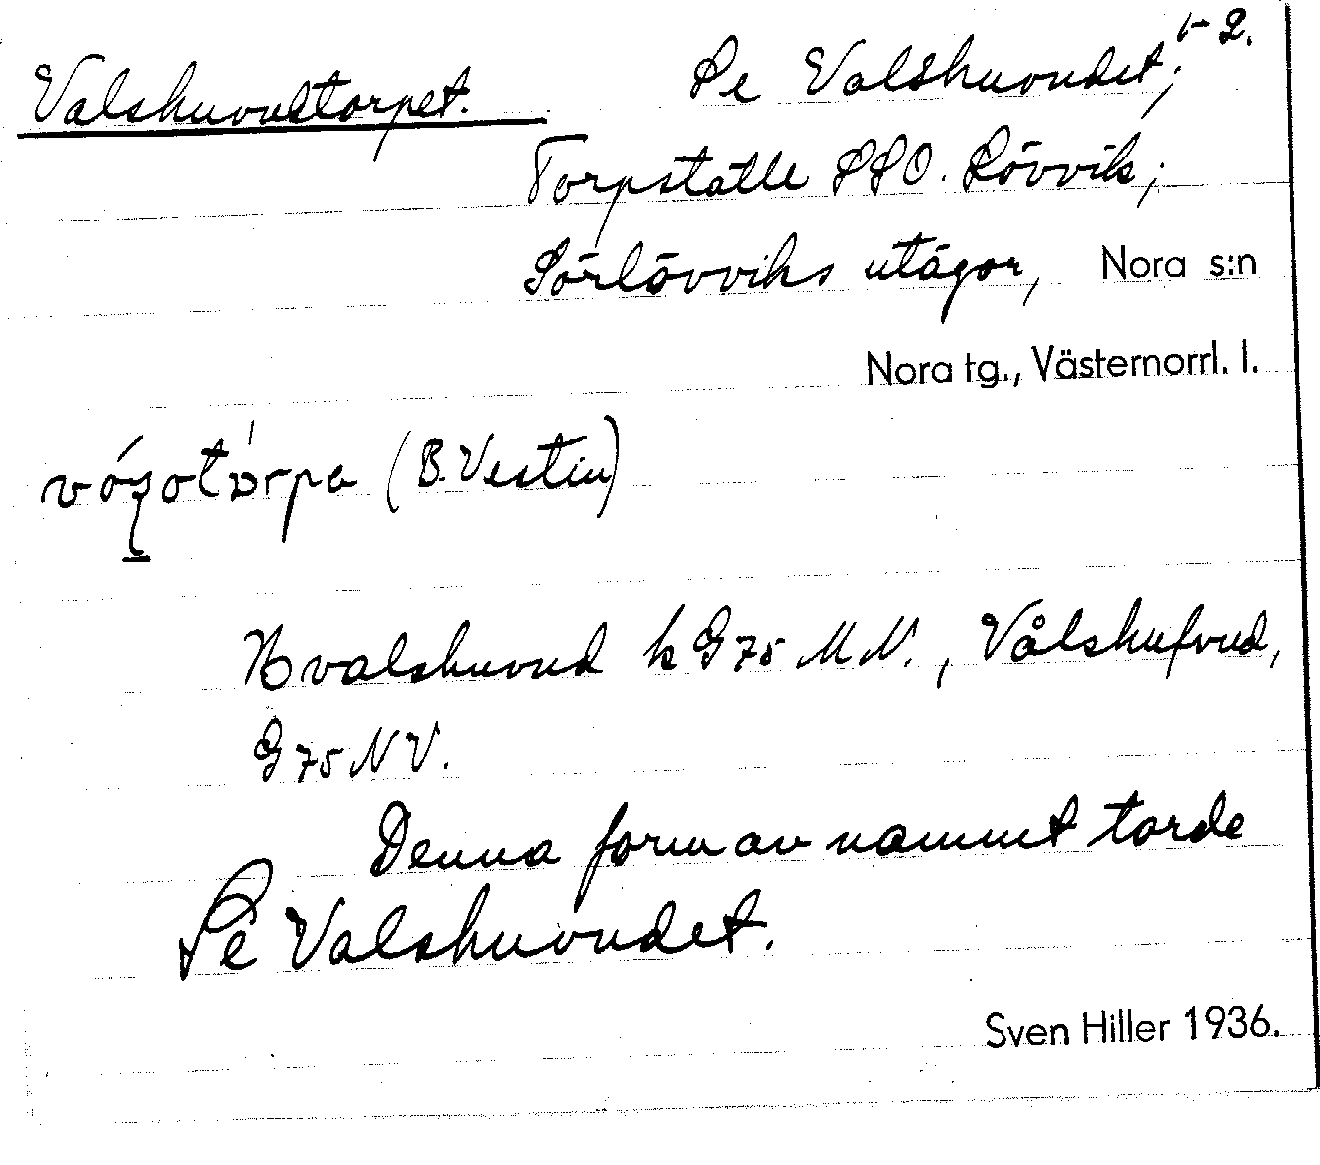 Valshuvudtorpet. Se Valshuvudet; 1-2.
Torpställe SSO. Lövvik;
Sörlövviks utägor, Nora s:n
Nora tg., Västernorrl. l.
(B. Vestin)
Hvalshuvud k G75 M.N., Vålshufvud,
G75 N V.
Denna form av namnet torde
Se Valshuvudet.
Sven Hiller 1936.